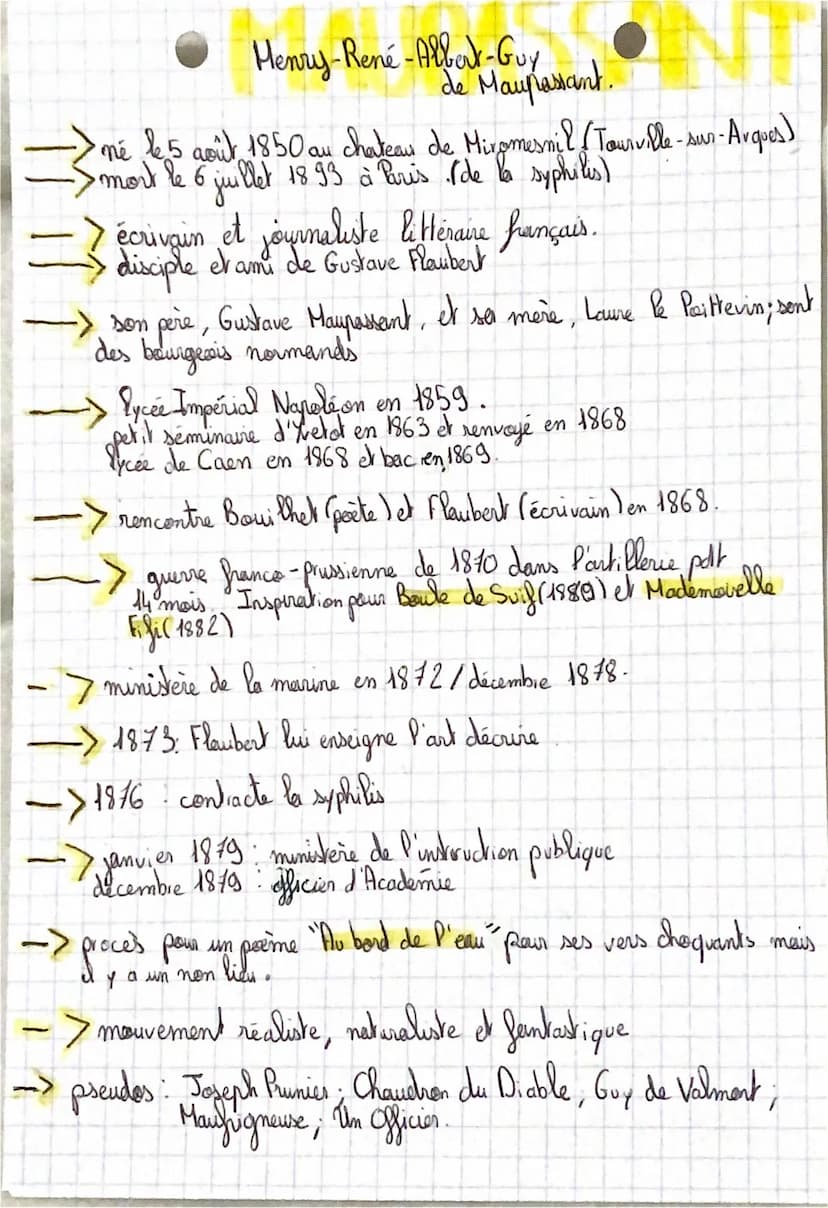 MAUPASSANT
Henry-René-Albert-Guy
de Maupassant.
→ né le 5 août 1850 au chateau de Miromesnil (Tourville-sur-Arques)
→ mort le 6 juillet 1893 à Paris. (de la syphilis)
→ écrivain et journaliste littéraire français.
→ disciple et ami de Gustave Flaubert
→ son père, Gustave Maupassant, et sa mère, Laure le Poittevin; sont
des bourgeois normands
→ lycée Impérial Napoléon en 1859.
petit séminaire d'Yvetot en 1863 et renvoyé en 1868
lycée de Caen en 1868 et bac en 1869.
→ rencontre Bouilhet (poète) et Flaubert (écrivain) en 1868.
→ guerre franco-prussienne de 1870 dans l'artillerie pdt
14 mois. Inspiration pour Boule de Suif (1880) et Mademoiselle
Fifi (1882)
→ ministère de la marine en 1872 / décembre 1878.
→ 1873: Flaubert lui enseigne l'art décrire
→ 1876 : contracte la syphilis
→ janvier 1879 : ministère de l'instruction publique
décembre 1879 : officier d'Académie
→ procès pour un poème "Au bord de l'eau" pour ses vers choquants mais
il y a un non lieu.
→ mouvement réaliste, naturaliste et fantastique
→ pseudos : Joseph Prunier ; Chaudron du Diable, Guy de Valmont ;
Maufrigneuse ; Un Officier.